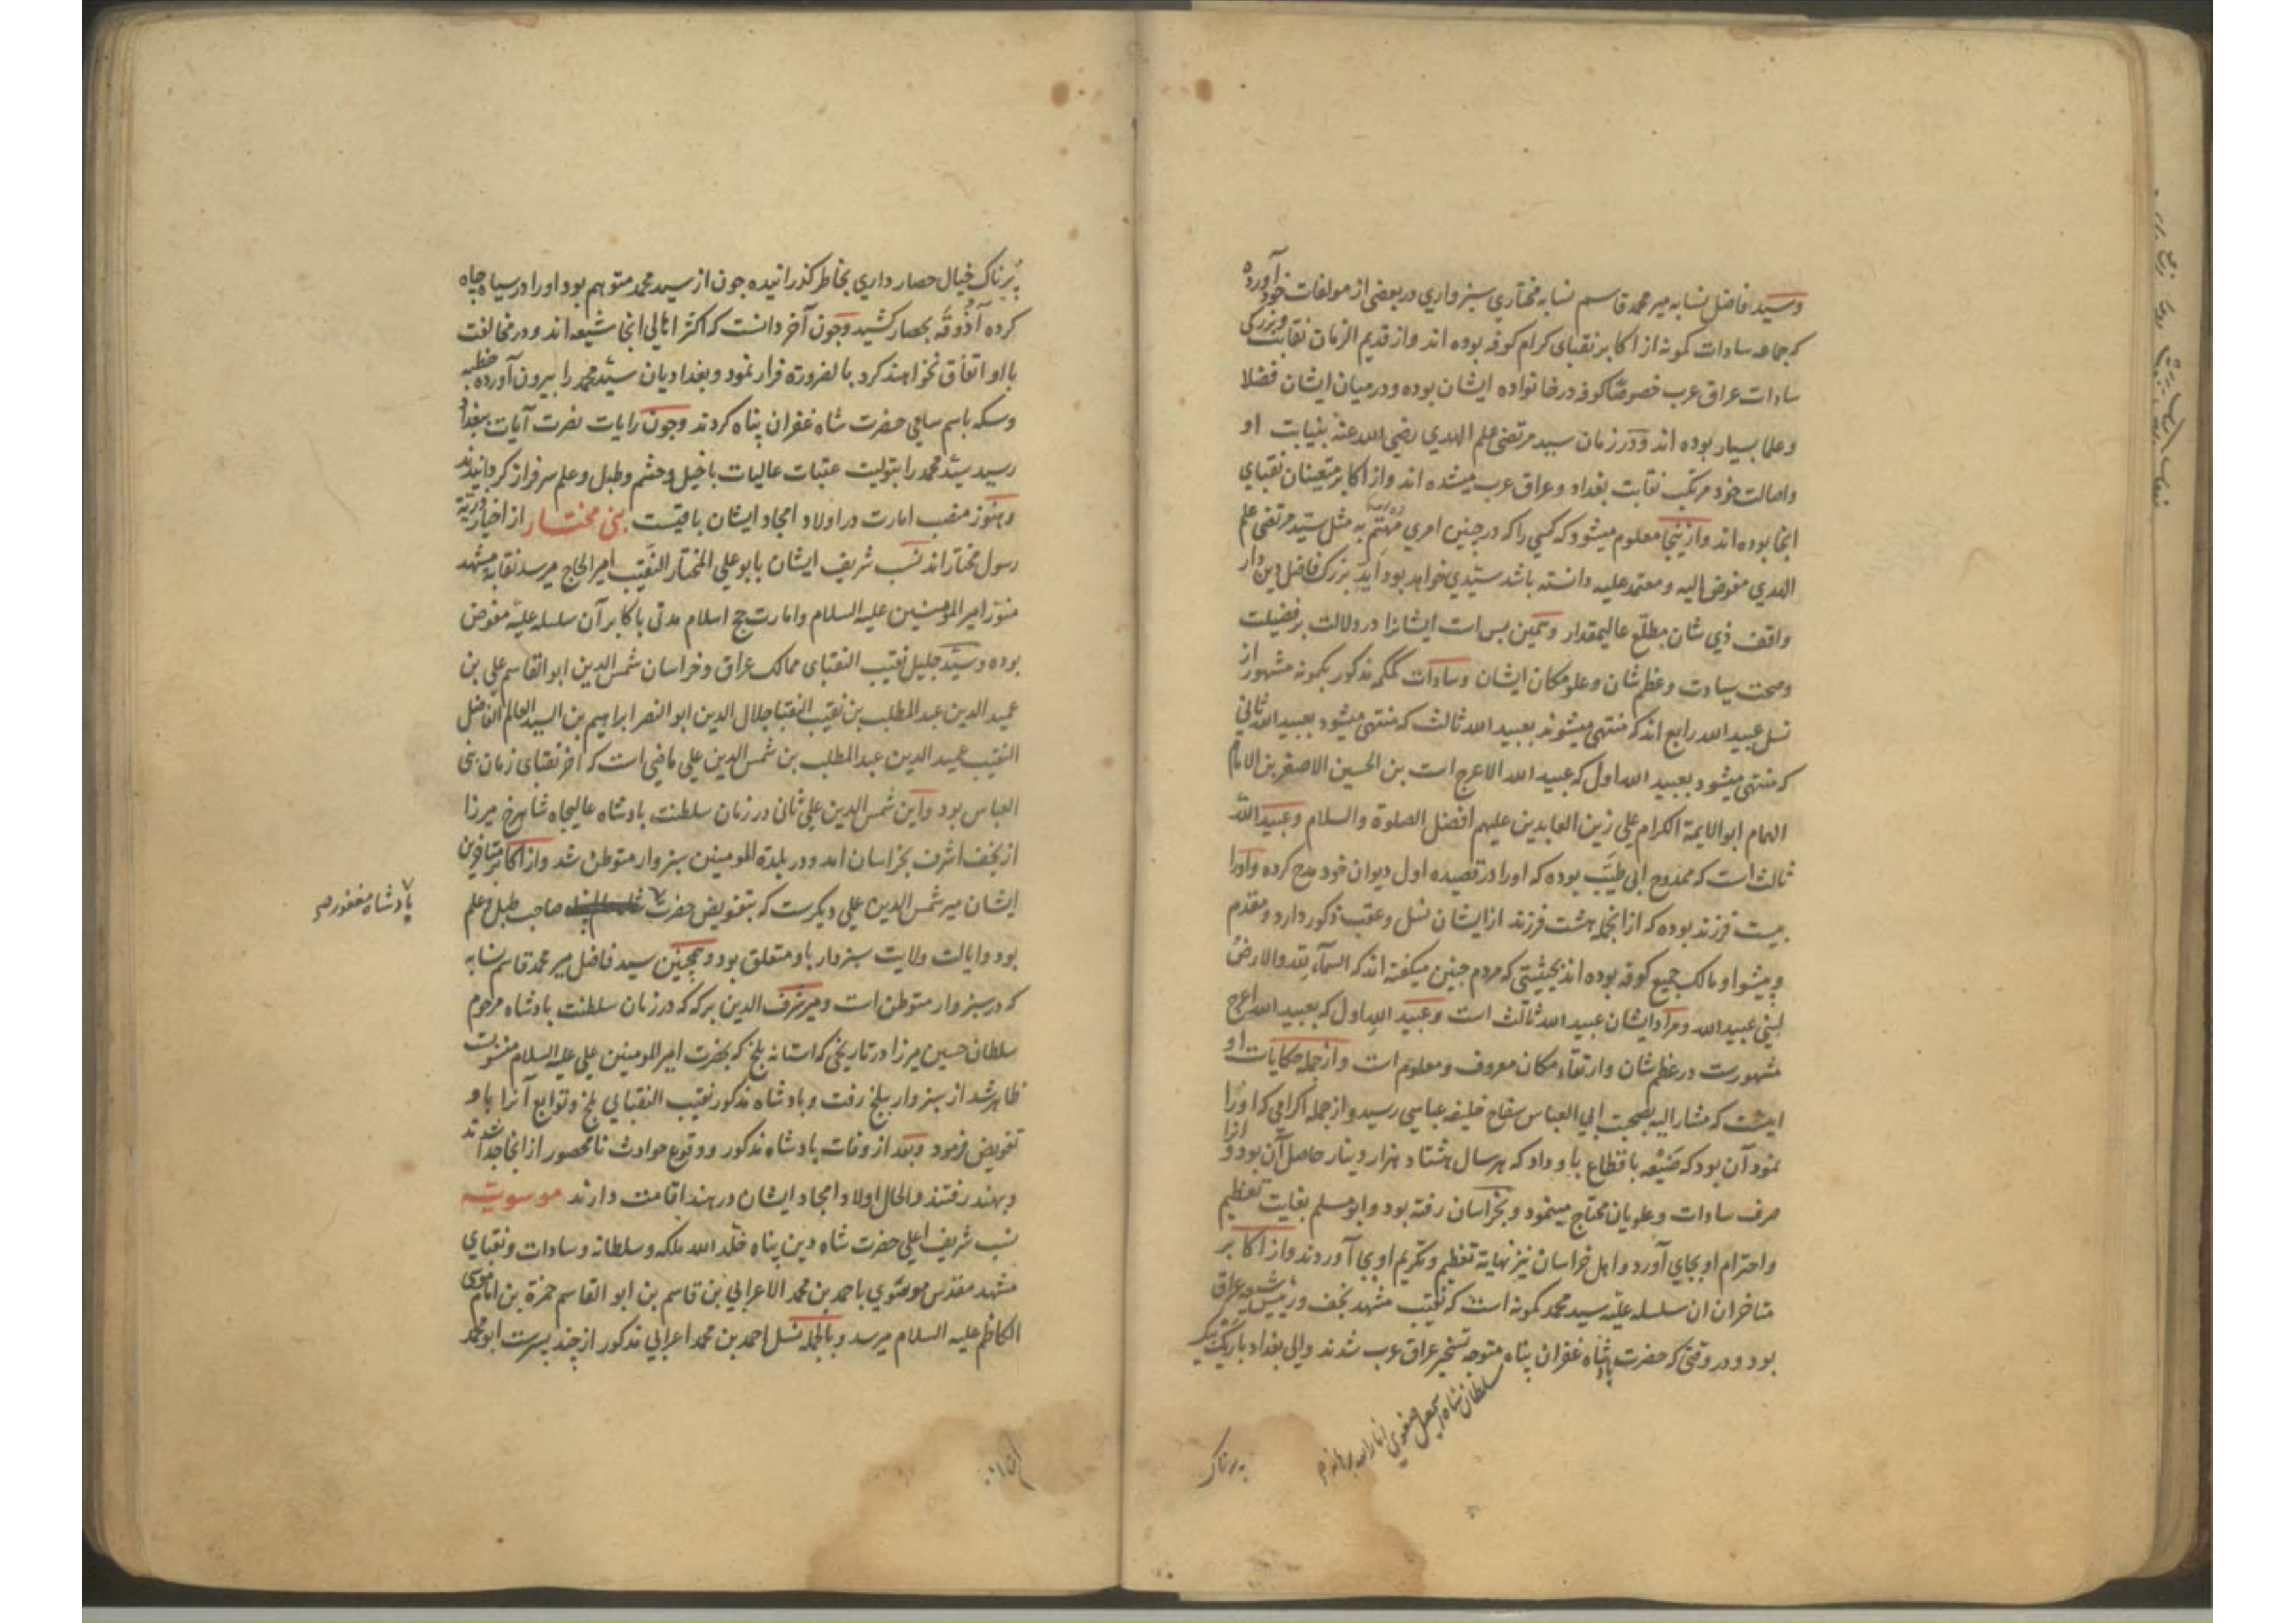 وسید فاضل نسابه میر محمد قاسم نسابه مختاری سبزواری در بعضی از مولفات خود آورده
که جماعه سادات کمونه از اکابر نقبای کرام کوفه بوده اند و از قدیم الزمان نقابت و بزرگی
سادات عراق عرب خصوصا کوفه در خانواده ایشان بوده و در میان ایشان فضلا
و علما بسیار بوده اند و در زمان سید مرتضی علم الهدی رضی الله عنه بنیابت او
و اصالت خود مرتکب نقابت بغداد و عراق عرب میشده اند و از اکابر متعینان نقبای
انجا بوده اند و ازینجا معلوم میشود که کسی را که در چنین امری مهتم به مثل سید مرتضی علم
الهدی مفوض الیه و معتمد علیه دانسته باشد سیدی خواهد بود بزرک فاضل دین دار
واقف ذی شان مطلع عالیمقدار و همین بس است ایشانرا در دلالت بر فضیلت
و صحت سیادت و عظم شان و علو مکان ایشان و سادات مذکور بکمونه مشهور از
نسل عبید الله رابع اند که منتهی میشوند بعبید الله ثالث که منتهی میشود بعبید الله ثانی
که منتهی میشود بعبید الله اول که عبید الله الاعرج است بن الحسین الاصغر بن الامام
الهمام ابو الایمة الکرام علی زین العابدین علیهم افضل الصلوة والسلام و عبید الله
ثالث است که ممدوح ابی طیب بوده که او را در قصیده اول دیوان خود مدح کرده و او را
بیست فرزند بوده که از انجمله هشت فرزند از ایشان نسل و عقب ذکور دارد و مقدم
و پیشوا و مالک جمیع کوفه بوده اند بحیثیتی که مردم چنین میکفته اند که السمآء لله والارض
لبنی عبید الله و مراد ایشان عبید الله ثالث است و عبید الله اول که بعبید الله اعرج
مشهورست در عظم شان و ارتقاء مکان معروف و معلوم است و از جمله حکایات او
اینست که مشار الیه بصحبت ابی العباس سفاح خلیفه عباسی رسید و از جمله اکرامی که او را
نمود آن بود که ضیعه باقطاع باو داد که هر سال هشتاد هزار دینار حاصل آن بود و انرا
صرف سادات و علویان محتاج مینمود و بخراسان رفته بود و ابو مسلم بغایت تعظیم
و احترام او بجای آورد و اهل خراسان نیز نهایة تعظیم و تکریم او بجا آوردند و از اکابر
متاخران ان سلسله علیه سید محمد کمونه است که نقیب مشهد نجف و رئیس شیعه عراق
بود و در وقتی که حضرت پادشاه غفران پناه متوجه تسخیر عراق عرب شدند والی بغداد باریک بیک
سلطان شاه اسمعیل صفوی انار الله برهانه
پرناک
پرناک خیال حصار داری بخاطر کذرانیده چون از سید محمد متوهم بود او را در سیاه چاه
کرده آذوقه بحصار کشید و چون آخر دانست که اکثر اهالی انجا شیعه اند و در مخالفت
با او اتفاق نخواهند کرد بالضرورة فرار نمود و بغدادیان سید محمد را بیرون آورده خطبه
و سکه باسم سامی حضرت شاه غفران پناه کردند و چون رایات نصرت آیات ببغداد
رسید سید محمد را بتولیت عتبات عالیات با خیل و حشم و طبل و علم سرفراز کردانیدند
و هنوز منصب امارت در اولاد امجاد ایشان باقیست بنی مختار از اخیار ذریة
رسول مختار اند نسب شریف ایشان بابو علی المختار النقیب امیر الحاج میرسد نقابة مشهد
منور امیر المومنین علیه السلام و امارت حج اسلام مدتی باکابر آن سلسله علیه مفوض
بوده و سید جلیل نقیب النقبای ممالک عراق و خراسان شمس الدین ابو القاسم علی بن
عمید الدین عبد المطلب بن نقیب النقبا جلال الدین ابو النصر ابراهیم بن السید العالم الفاضل
النقیب عمید الدین عبد المطلب بن شمس الدین علی ماضی است که اخر نقبای زمان بنی
العباس بود و این شمس الدین علی ثانی در زمان سلطنت بادشاه عالیجاه شاهرخ میرزا
از نجف اشرف بخراسان امد و در بلدة المومنین سبزوار متوطن شد و از اکابر متاخرین
ایشان میر شمس الدین علی دیکرست که بتفویض حضرت صاحب طبل و علم
پادشاه مغفور صح
بود و ایالت ولایت سبزوار باو متعلق بود و همچنین سید فاضل میر محمد قاسم نسابه
که در سبزوار متوطن است و میر شرف الدین برکه که در زمان سلطنت بادشاه مرحوم
سلطان حسین میرزا در تاریخی که استانه بلخ که بحضرت امیر المومنین علی علیه السلام منسوبست
ظاهر شد از سبزوار ببلخ رفت و بادشاه مذکور نقیب النقبایی بلخ و توابع آنرا باو
تفویض فرمود و بعد از وفات بادشاه مذکور و وقوع حوادث نامحصور از انجا جدا شدند
و بهند رفتند و الحال اولاد امجاد ایشان در هند اقامت دارند موسویه
نسب شریف اعلی حضرت شاه دین پناه خلد الله ملکه و سلطانه و سادات و نقبای
مشهد مقدس موسوی باحمد بن محمد الاعرابی بن قاسم بن ابو القاسم حمزة بن امام موسی
الکاظم علیه السلام میرسد و بالجمله نسل احمد بن محمد اعرابی مذکور از چند پسرست ابو محمد